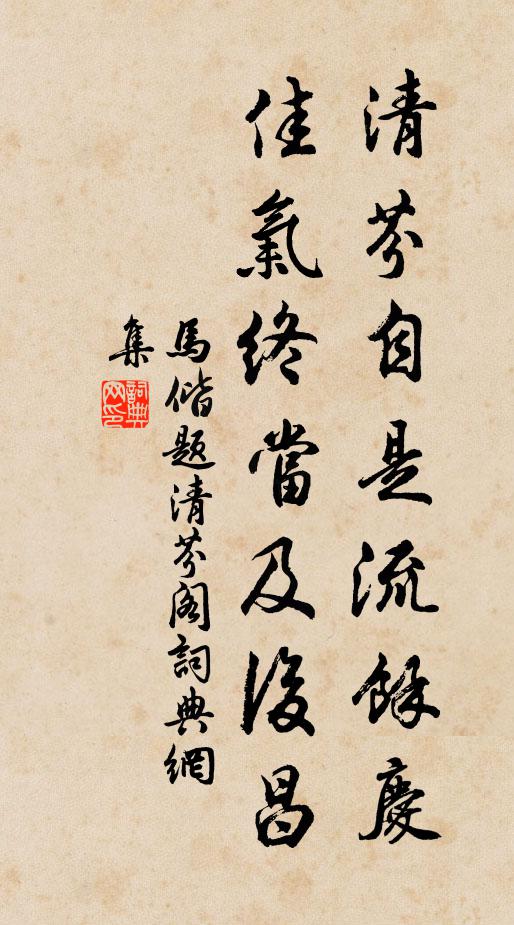 清芬自是流餘慶
佳氣終當及後昌
馬偕題清芬閣詞典網
集
詞典
网印